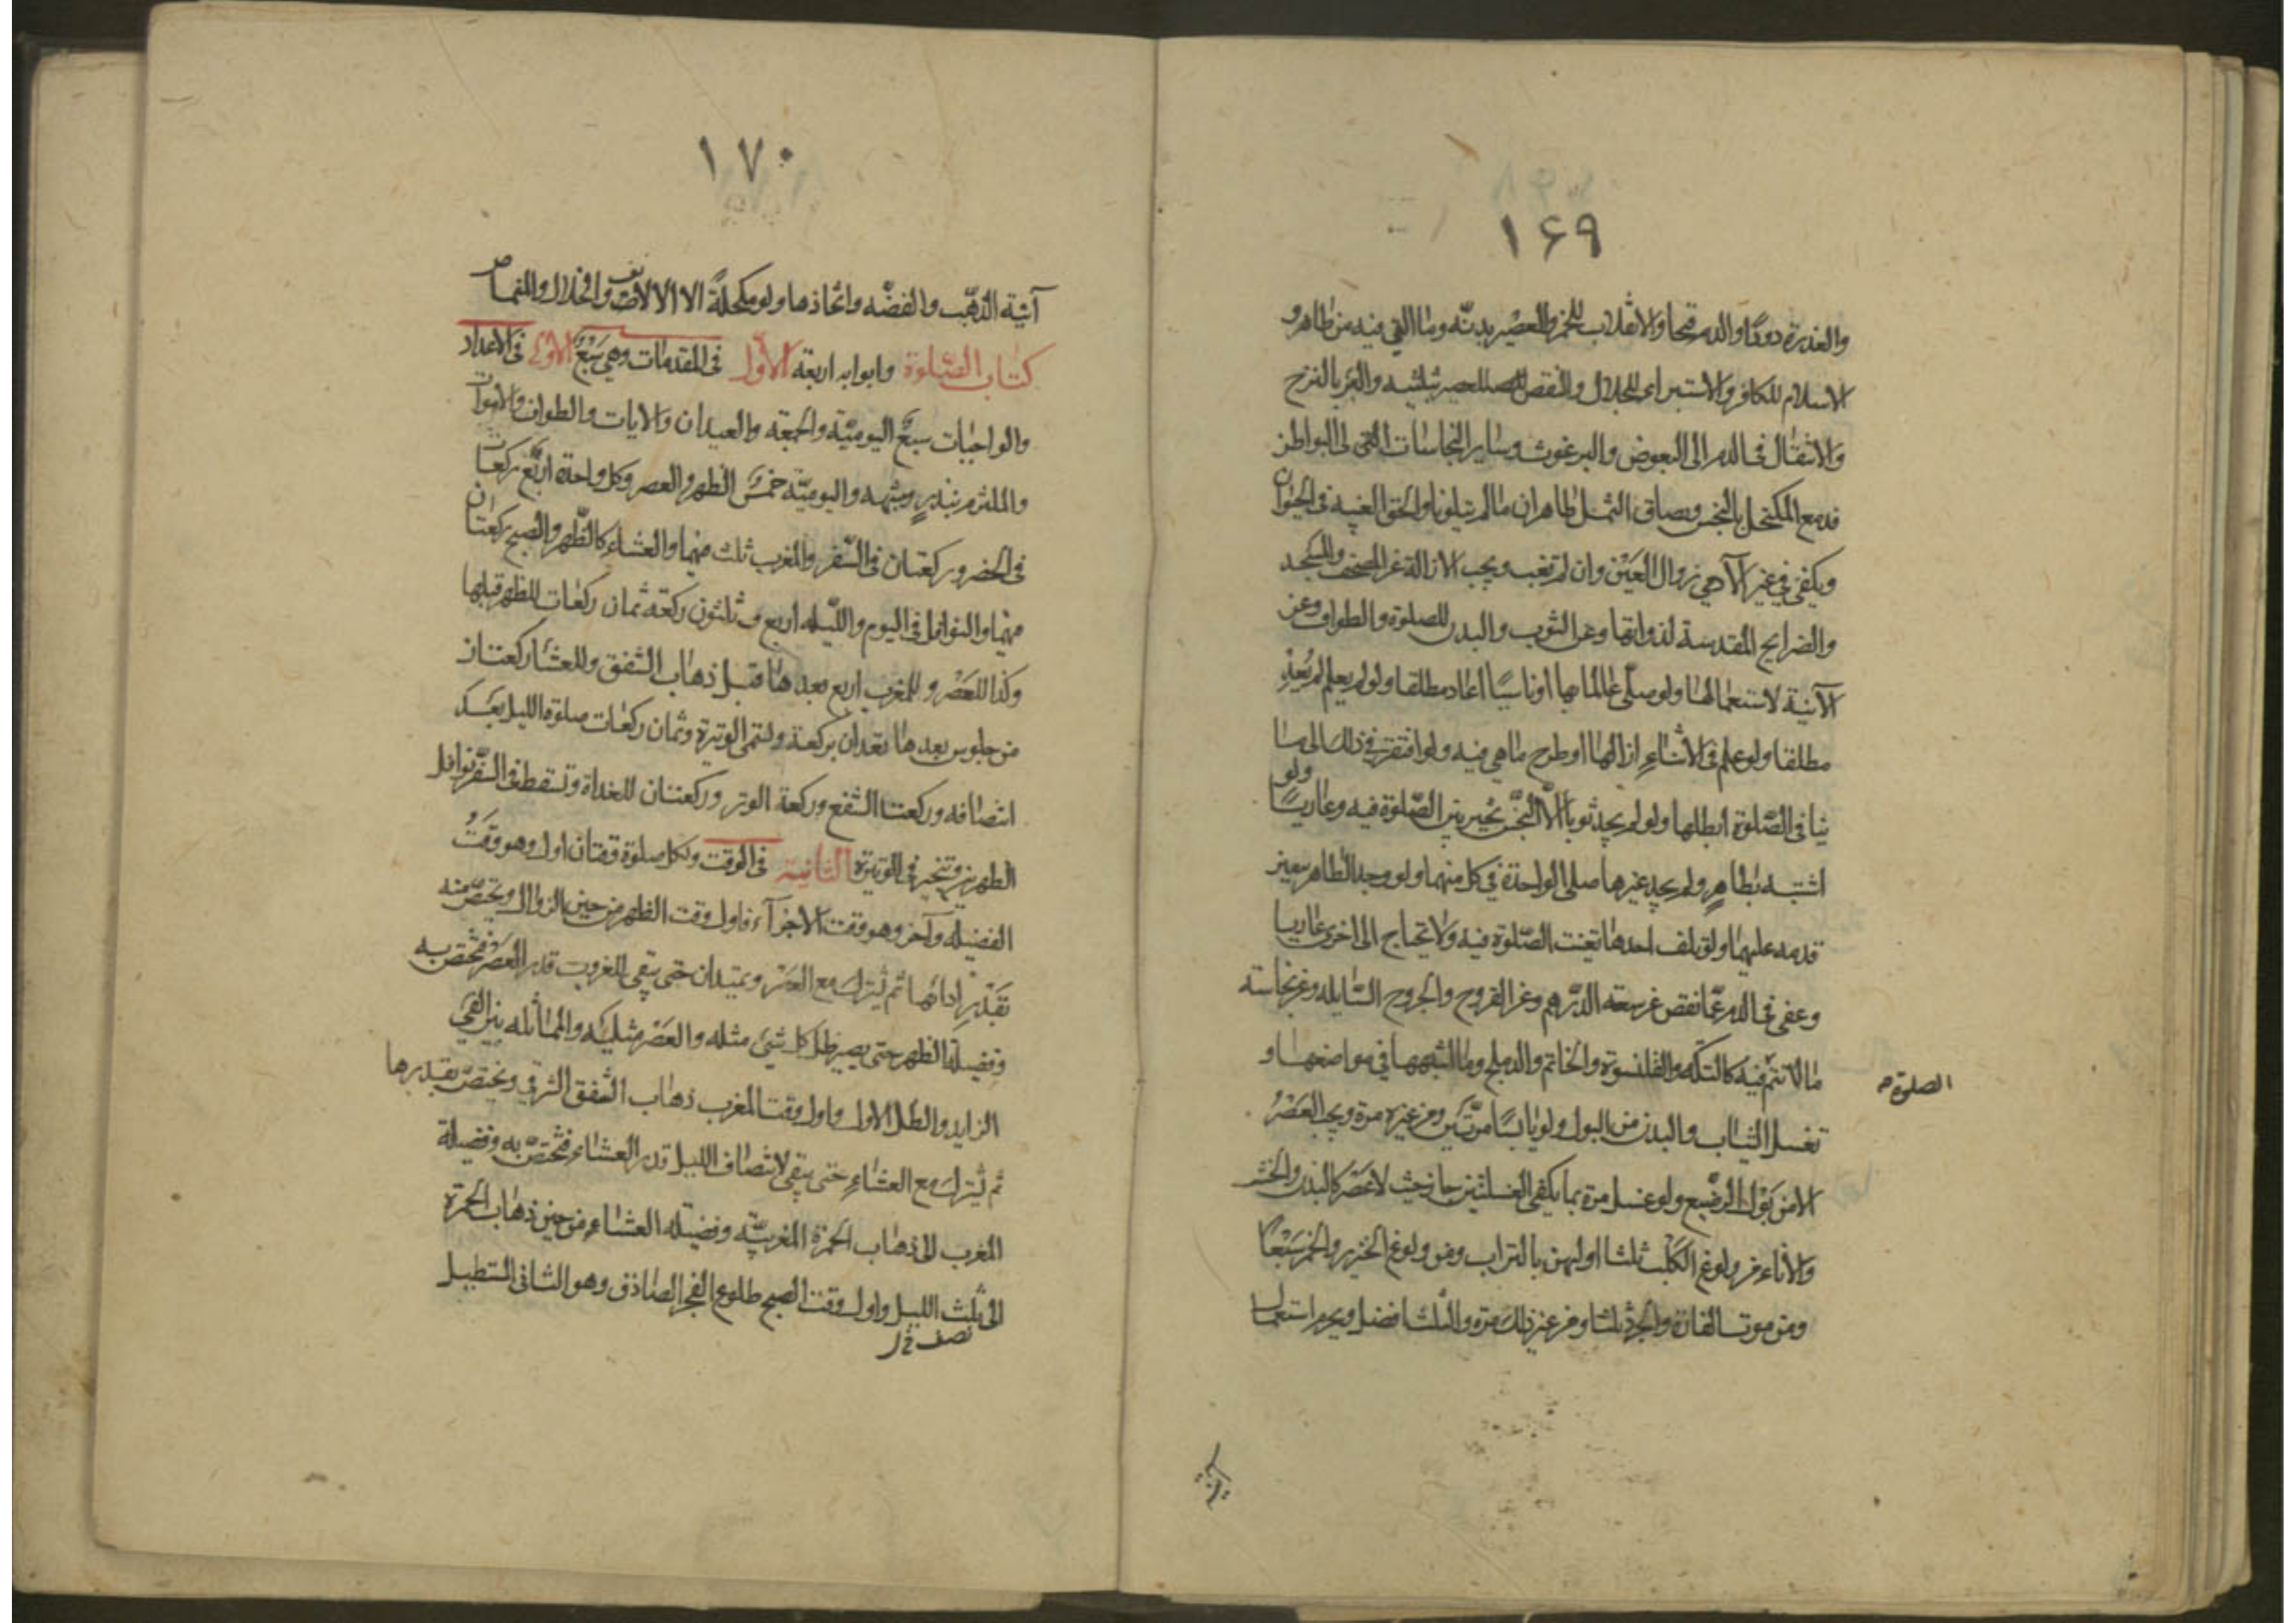 ١۶٩
والعذرة دودًا والدم قيحا والانقلاب للخمر والعصير بدنّه وما القي فيه من طاهر و
الاسلام للكافر والاستبراء للجلال والنقص للعصير بثلثيه والبئر بالنزح
والانتقال في الدم الى البعوض والبرغوث وساير النجاسات التي لى البواطن
فدمع المكتحل بالنجس وبصاق الثمل طاهران ما لم يتلونا والحق الغيبة في الحيوان
ويكفي في غير الآدمي زوال العين وان لم تغب ويجب الازالة عن المصحف والمسجد
والضرايح المقدسة لذواتها وعن الثوب والبدن للصلوة والطواف وعن
الآنية لاستعمالها ولو صلّى عالما بها او ناسيًا اعاد مطلقا ولو لم يعلم لم يُعِدْ
مطلقا ولو علم في الاثناء ازالها او طرح ما هي فيه ولو افتقر في ذلك الى ما
ينافي الصّلوة ابطلها ولو لم يجد ثوبا الّا النجس تخير بين الصّلوة فيه وعاريًا ولو
اشتبه بطاهرٍ ولم يجد غيرها صلى الواحدة في كل منهما ولو وجد الطاهر بيقين
قدمه عليهما ولو تلف احدها تعينت الصّلوة فيه ولا يحتاج الى اخرى عاريا
وعفي في الدم عمّا نقص عن سعة الدّرهم وعن القروح والجروح السّايله وعن نجاسة
ما لا تتم فيه كالتكّه والقلنسوة والخاتم والدملج وما اشبهها في مواضعها و
الصلوة م
تغسل الثياب والبدن من البول ولو يابسًا مرّتين ومن غيره مرة ويجب العَصْرُ
الا من بَوْل الرضيع ولو غسل مرة بما يكفي الغسلتين جاز حيث لا عَصْر كالبدن والخشب
والاناء من ولوغ الكلب ثلثا اوليهن بالتراب ومن ولوغ الخنزير والخمر سَبْعًا
ومن موت الفارة والجرذ ثلثا ومن غير ذلك مرة والثلث افضل ويحرم استعمال
آنية
١٧٠
آنية الذهب والفضّه واتخاذها ولو مكحلةً الا الالات والخلال واللفما
كتاب الصّلوة وابوابه اربعة الاوّل في المقدمات وهي سَبْعُ الاولى في الاعداد
والواجبات سبعٌ اليوميّة والجمعة والعيدان والايات والطواف والاموات
والملتزم بنذرٍ وشبهه واليوميّة خمسٌ الظهر والعصر وكل واحدة اربع ركعات
في الحضر وركعتان في السّفر والمغرب ثلث فيهما والعشاء كالظّهر والصبح ركعتان
فيهما والنوافل في اليوم والليله اربع وثلثون ركعة ثمان ركعات للظهر قبلها
وكذا للعَصْر وللمغرب اربع بعدها قبل ذهاب الشفق وللعشاء ركعتان
من جلوس بعدها تعدان بركعة وتسمى الوتيرة وثمان ركعات صلوة الليل بعد
انتصافه وركعتا الشفع وركعة الوتر وركعتان للغداة وتسقط في السّفر نوافل
الظهرين وتخير في الوتيرة الثانية في الوقت ولكل صلوة وقتان اول وهو وقتُ
الفضيله وآخر وهو وقت الاجزآء فاول وقت الظهر من حين الزوال وتختصّ منه
بقَدْرِ ادائها ثم تُشرك مع العَصْر ويمتدان حتى يبقى للغروب قدر العَصْر فتختص به
وفضيلة الظهر حتى يصير ظل كل شئ مثله والعَصْر مثليه والمماثله بين الفيء
الزايد والظل الاول واول وقت المغرب ذهاب الشفق الشرقي وتختصّ بقدرها
ثم تُشرك مع العشاء حتى يبقى لانتصاف الليل قدر العشاء فتختصّ به وفضيلة
المغرب الى ذهاب الحمرة المغربيّه وفضيلة العشاء من حين ذهاب الحمرة
الى ثلث الليل واول وقت الصبح طلوع الفجر الصادق وهو الثاني المستطيل
نصف خ ل